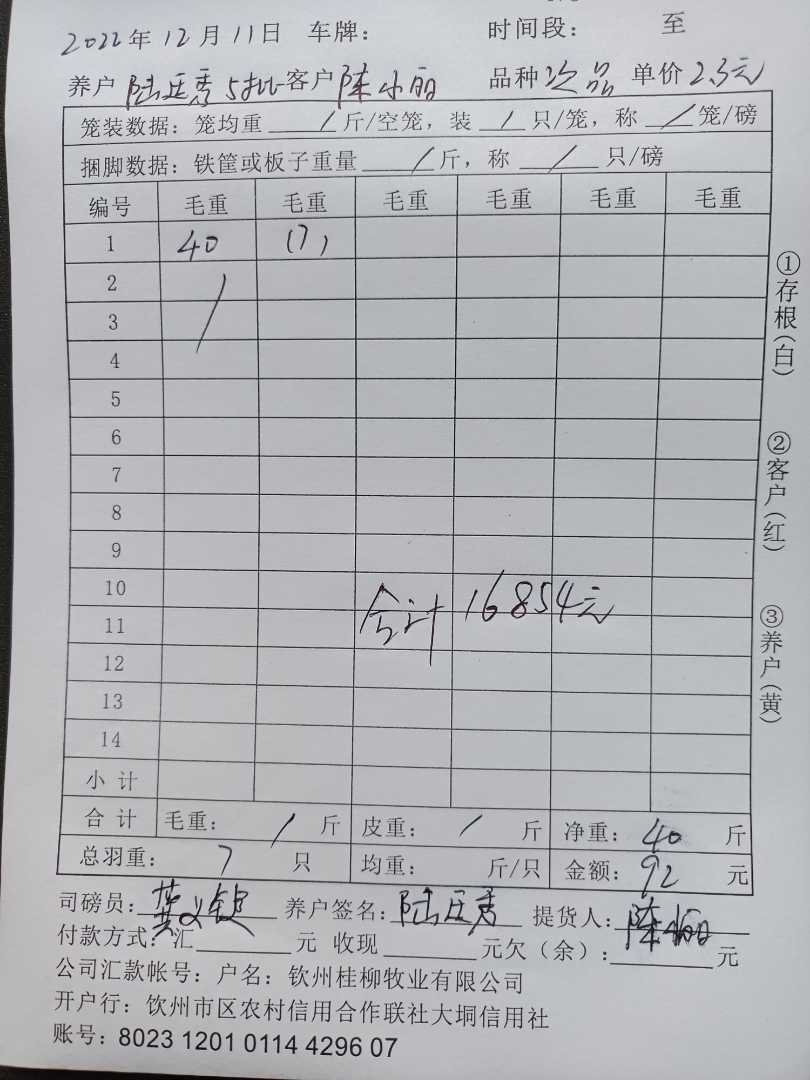 2022年12月11日 车牌： 时间段： 至
养户 陆廷秀 5批 客户 陈小丽 品种 次品 单价 2.3元
笼装数据：笼均重 / 斤/空笼，装 / 只/笼，称 / 笼/磅
捆脚数据：铁筐或板子重量 / 斤，称 / 只/磅
编号 毛重 毛重 毛重 毛重 毛重 毛重
1 40 (7)
2 /
3
4
5
6
7
8
9
10
合计 16854元
11
12
13
14
小计
合计 毛重： / 斤 皮重： / 斤 净重： 40 斤
总羽重： 7 只 均重： 斤/只 金额： 92 元
司磅员： 养户签名：陆廷秀 提货人：陈小丽
付款方式：汇 元 收现 元欠（余）： 元
公司汇款帐号：户名：钦州桂柳牧业有限公司
开户行：饮州市区农村信用合作联社大垌信用社
账号：8023 1201 0114 4296 07
①存根（白）
②客户（红）
③养户（黄）